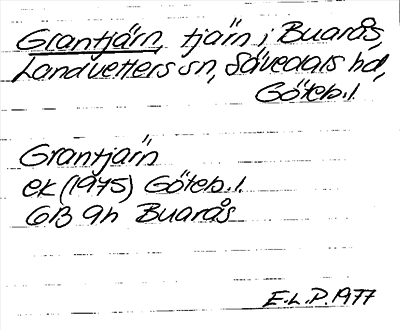 Grantjärn, tjärn i Buarås,
Landvetters sn, Sävedals hd,
Göteb. l.
Grantjärn
ek (1975) Göteb. l.
6B 9h Buarås
E.L.P. 1977